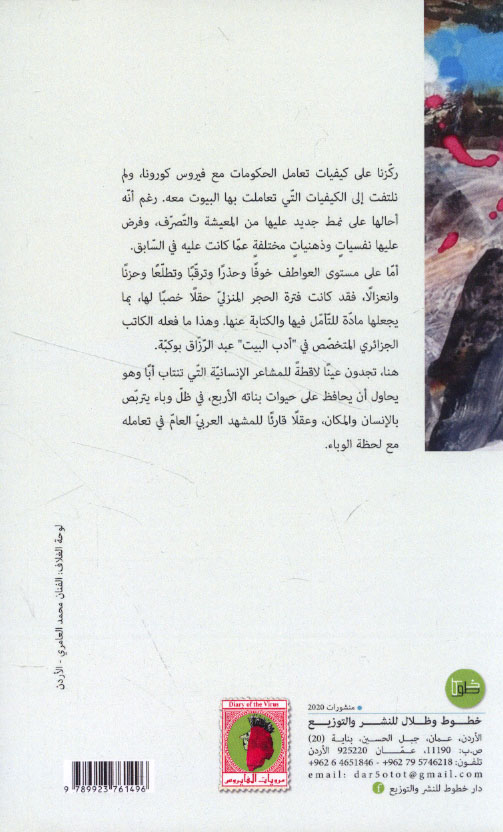 ركّزنا على كيفيات تعامل الحكومات مع فيروس كورونا، ولم
نلتفت إلى الكيفيات التّي تعاملت بها البيوت معه. رغم أنّه
أحالها على نمط جديد عليها من المعيشة والتّصرّف، وفرض
عليها نفسياتٍ وذهنياتٍ مختلفةٍ عمّا كانت عليه في السّابق.
أمّا على مستوى العواطف خوفًا وحذرًا وترقبًا وتطلّعًا وحزنًا
وانعزالًا، فقد كانت فترة الحجر المنزليّ حقلًا خصبًا لها، بما
يجعلها مادّة للتّأمّل فيها والكتابة عنها. وهذا ما فعله الكاتب
الجزائري المتخصّص في "أدب البيت" عبد الرّزّاق بوكبّة.
هنا، تجدون عينًا لاقطةً للمشاعر الإنسانيّة التّي تنتاب أبًا وهو
يحاول أن يحافظ على حيوات بناته الأربع، في ظلّ وباء يتربّص
بالإنسان والمكان، وعقلًا قارئًا للمشهد العربيّ العامّ في تعامله
مع لحظة الوباء.
لوحة الغلاف: الفنان محمد العامري - الأردن
خطوط
منشورات 2020
خطوط وظلال للنشر والتوزيع
الأردن، عمان، جبل الحسين، بناية (20)
ص.ب: 11190، عمّان 925220 الأردن
تلفون: +962 6 4651846 - +962 79 5746218
email: dar5otot@gmail.com
دار خطوط للنشر والتوزيع f
Diary of the Virus
مرويات الفايروس
9 789923 761496